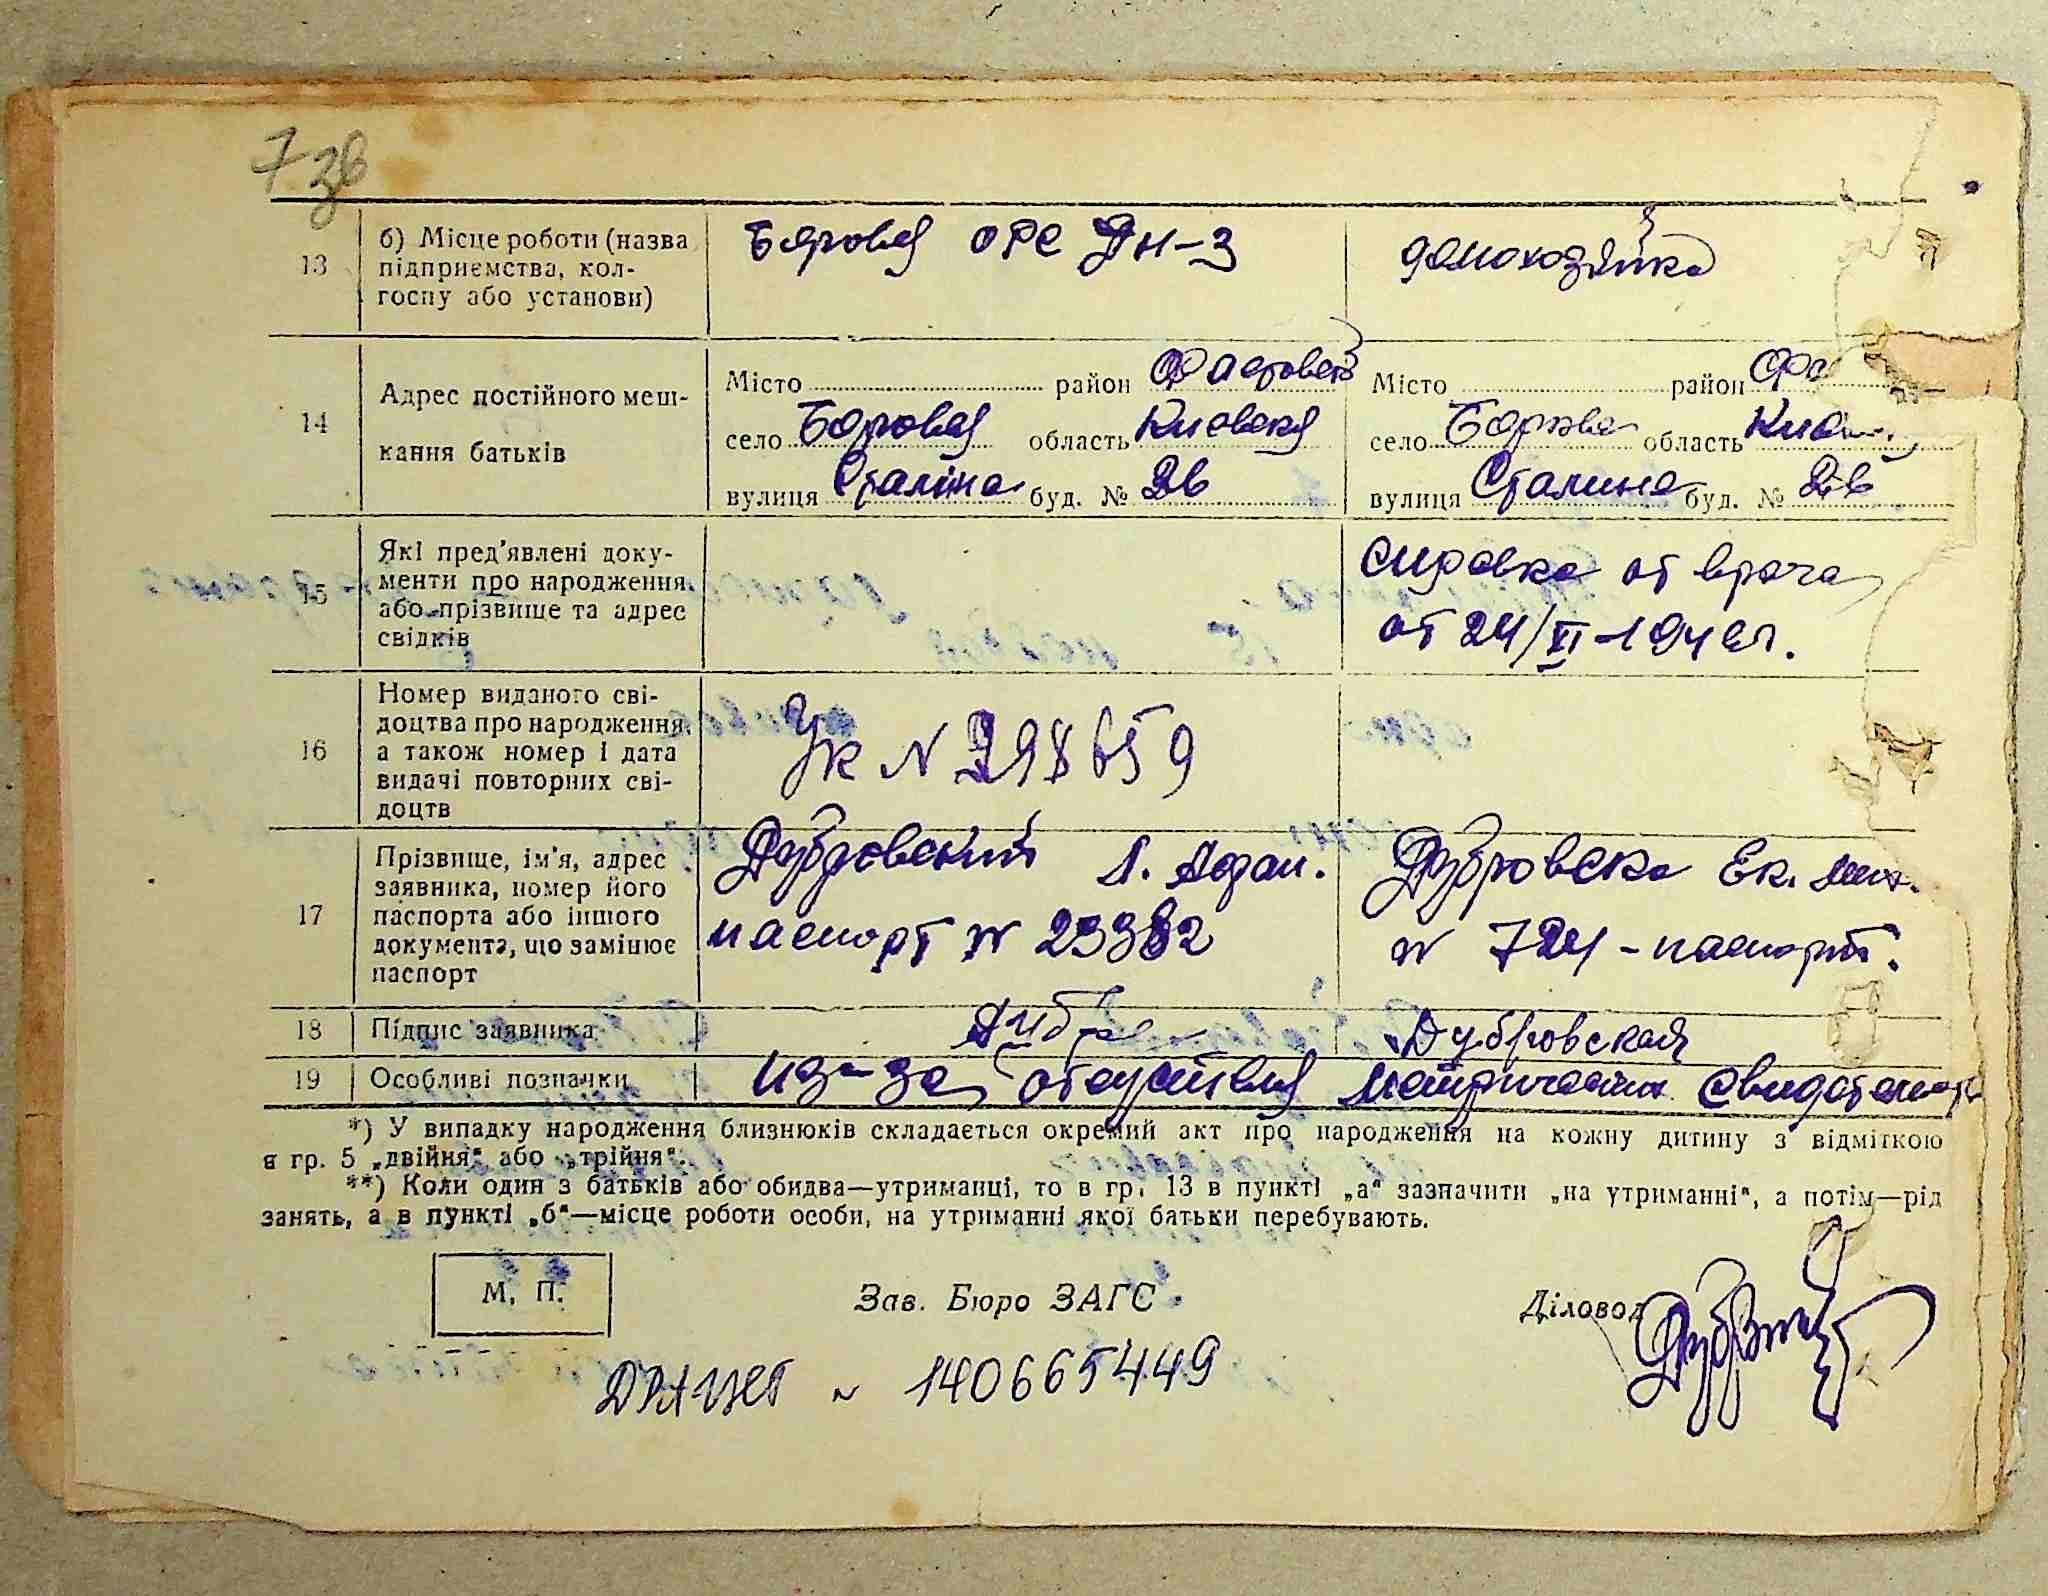 7 зв
13
б) Місце роботи (назва підприємства, колгоспу або установи)
Боровая ОРС ДН-3
домохозяйка
14
Адрес постійного мешкання батьків
Місто район Фастовск
село Боровая область Киевская
вулиця Сталіна буд. № 2в
Місто район Фа
село Борова область Кие
вулиця Сталина буд. № 2в
15
Які пред'явлені документи про народження або прізвище та адрес свідків
справка от врача
от 24/VI-1940г.
16
Номер виданого свідоцтва про народження, а також номер і дата видачі повторних свідоцтв
Ук N 298659
17
Прізвище, ім'я, адрес заявника, номер його паспорта або іншого документа, що замінює паспорт
Дубровский А. Адам.
паспорт N 23382
Дубровска Ек. Мих.
N 724 - паспорт.
18
Підпис заявника
Дубровская
19
Особливі позначки
из-за отсутствия метрических свидетельст
*) У випадку народження близнюків складається окремий акт про народження на кожну дитину з відміткою
в гр. 5 „двійня" або „трійня".
**) Коли один з батьків або обидва—утриманці, то в гр. 13 в пункті „а" зазначити „на утриманні", а потім—рід
занять, а в пункті „б"—місце роботи особи, на утриманні якої батьки перебувають.
М. П.
Зав. Бюро ЗАГС
Діловод
ДРАЦСГ N 140665449